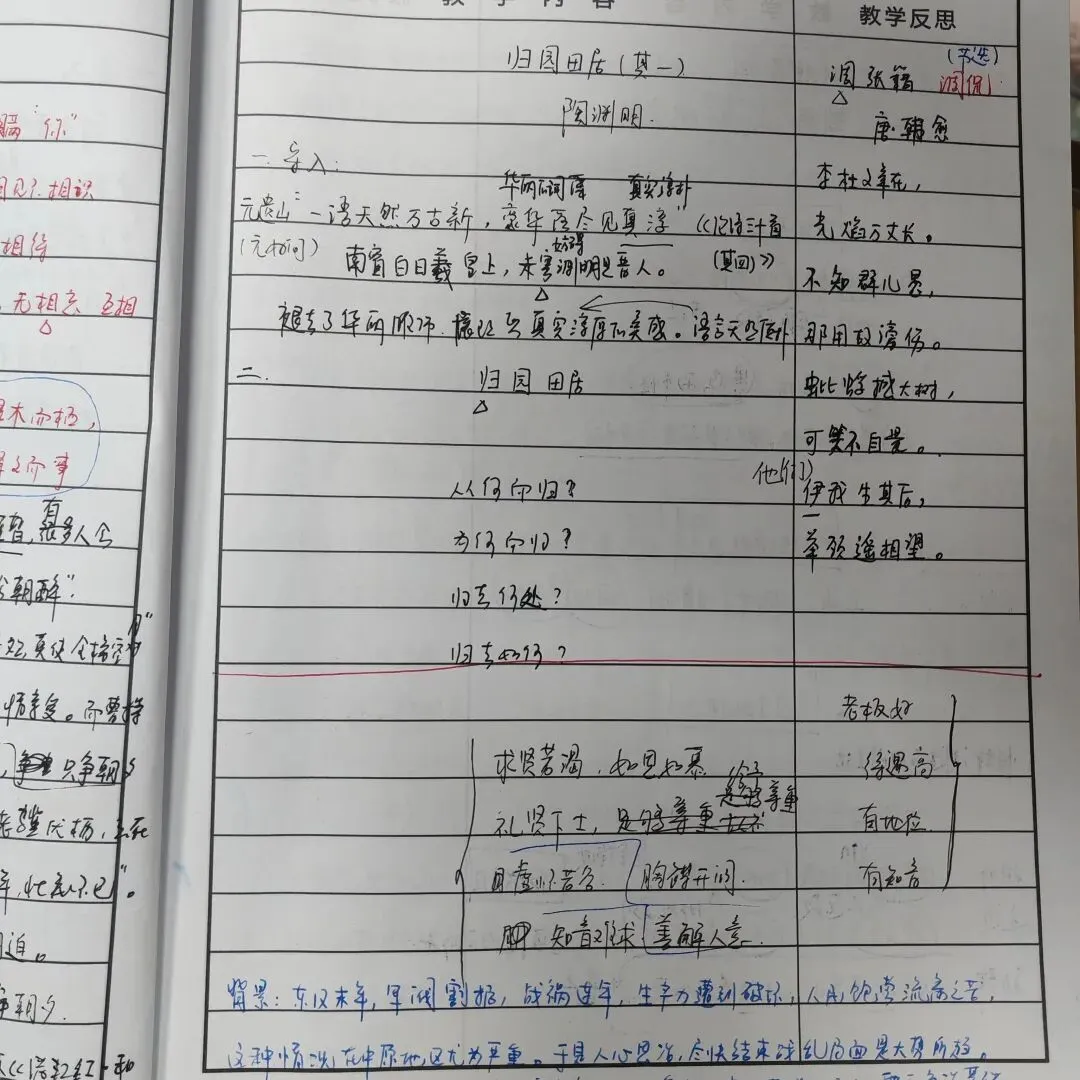 教学内容
归园田居(其一)
陶渊明
一.导入:
华丽的词藻 真实淳朴
元遗山"一语天然万古新,豪华落尽见真淳"《论诗三十首
(元好问) 南窗白日羲皇上,未害渊明是晋人。(其四)》
妨碍
褪去了华丽
真实淳厚的美感。语言天然质朴
二.
归园田居
从何而归?
为何而归?
归去何处?
归去如何?
求贤若渴,如思如慕
礼贤下士,足够尊重
给予
足够尊重
虚怀若谷 胸襟开阔
知音难求 善解人意
背景:东汉末年,军阀割据,战祸连年,生产力遭到破坏,人民饱尝流离之苦,
这种情况在中原地区尤为严重。于是人心思治,尽快结束战乱局面是大势所
教学反思
(节选)
调张籍 调侃
唐·韩愈
李杜文章在,
光焰万丈长。
不知群儿愚,
那用故谤伤。
蚍蜉撼大树,
可笑不自量。
他(们)
伊我生其后,
举颈遥相望。
老板好
待遇高
有地位
有知音
瞒 你"
相识
相待
无相忘 互相
木而栖,
而事
有
很多人会
朝醉"
真使金樽空对月"
情享受。而曹操
只争朝夕
老骥伏枥,
壮志不已"。
迫。
争朝夕.